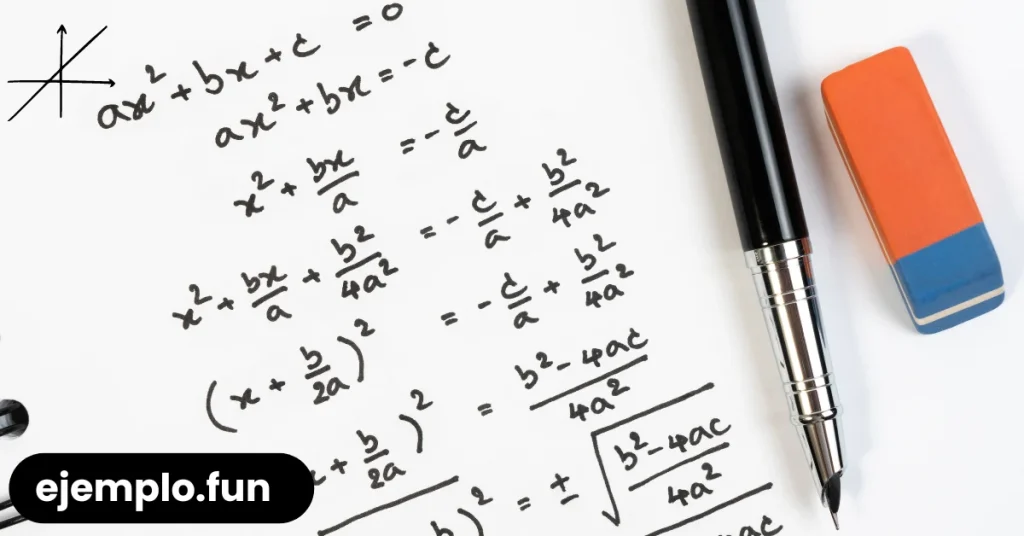 ax² + bx + c = 0
ax² + bx = -c
x² + bx/a = -c/a
x² + bx/a + b²/4a² = -c/a + b²/4a²
(x + b/2a)² = -c/a + b²/4a²
+ b/2a)² = b² - 4ac/4a²
b )² = ± √(b² - 4ac/4a²)
ac
ejemplo.fun